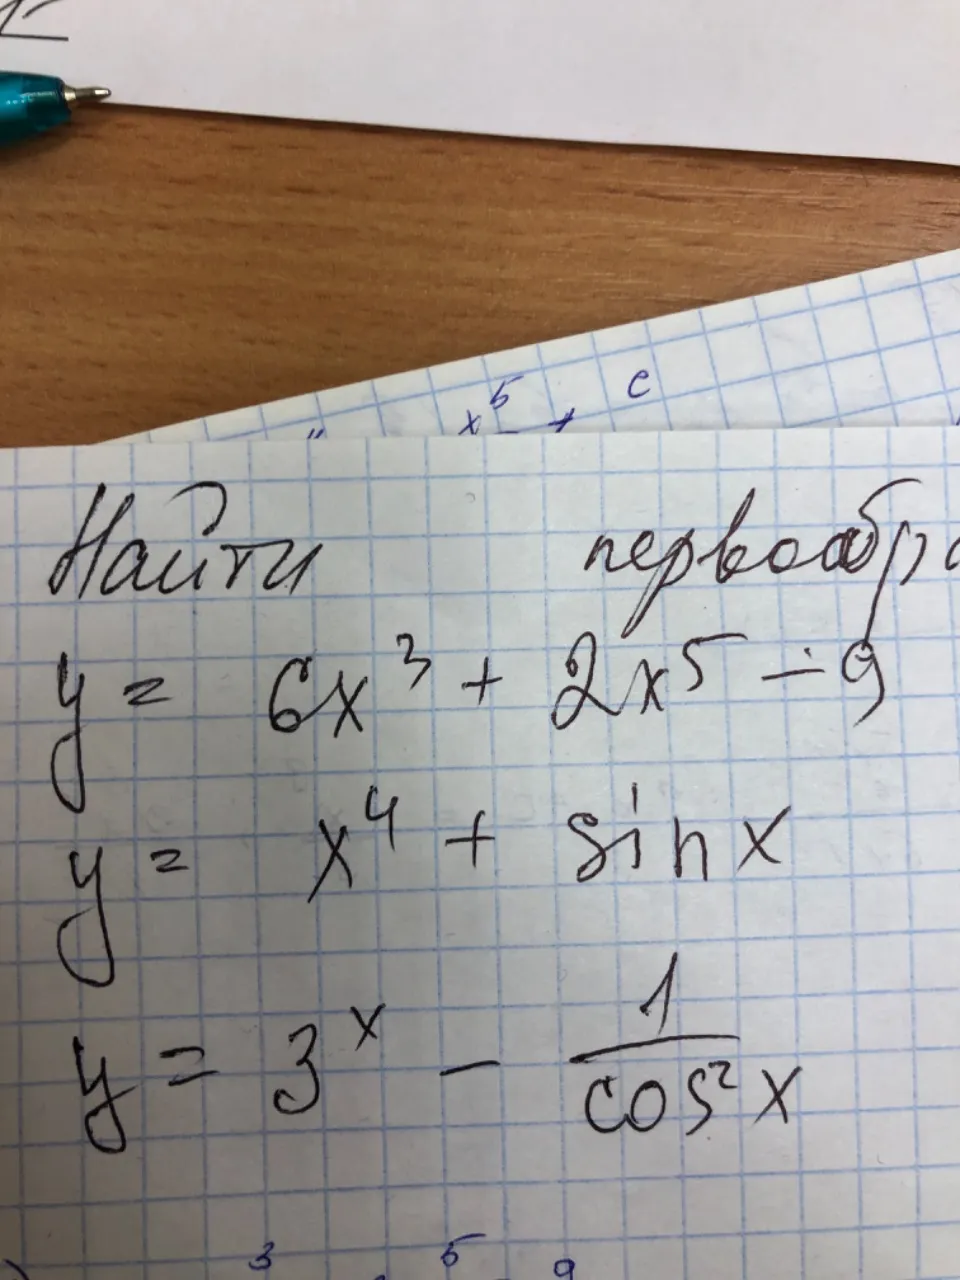 x⁵ + c
Найти первообра
y = 6x³ + 2x⁵ - 9
y = x⁴ + sin x
y = 3ˣ - 1/cos²x
3 5 9